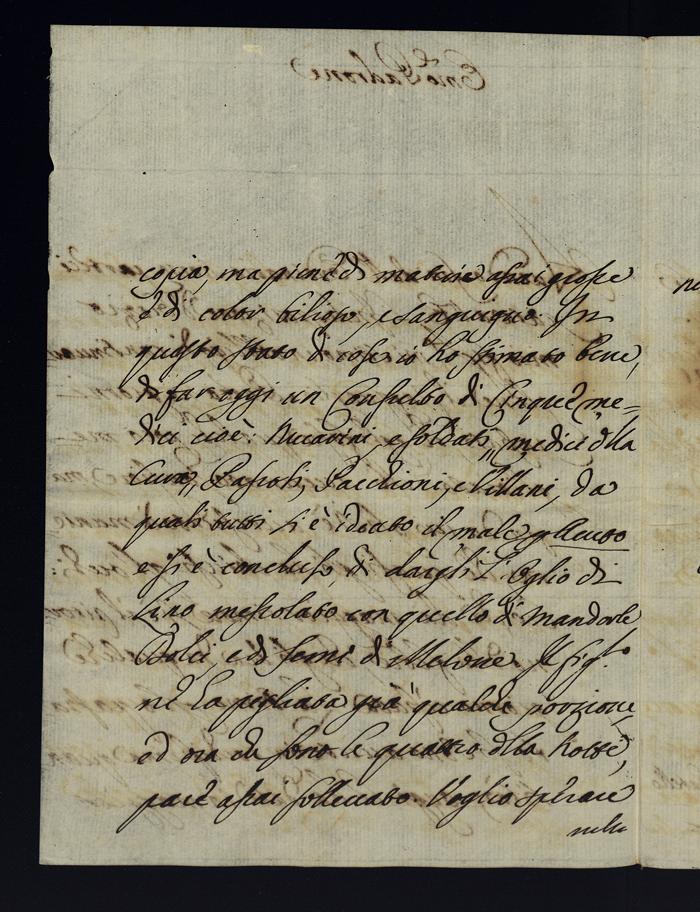 copia, ma piene di materie assai grosse
e di color bilioso, e sanguigno. In
questo stato di cose io ho stimato bene,
di far oggi un Consulto di Cinque me-
dici cioè: Riccarini, e Soldati, medici dlla
Cura, Pacchioni, e Villani, da
quali tutti si è ideato il male
e si è concluso di dargli l'oglio di
Lino mescolato con quello di Mandorle
Dolci, e di semi di Melone. Il sig.to
ne ha pigliata già qualche porzione,
ed ora che sono le quattro dlla Notte,
pare assai sollevato. Voglio sperare
nella